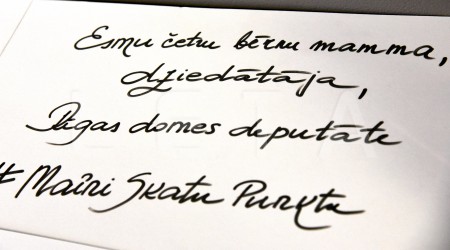 Esmu četru bērnu mamma,
dziedātāja,
Rīgas domes deputāte
#Maini Skatu Punktu